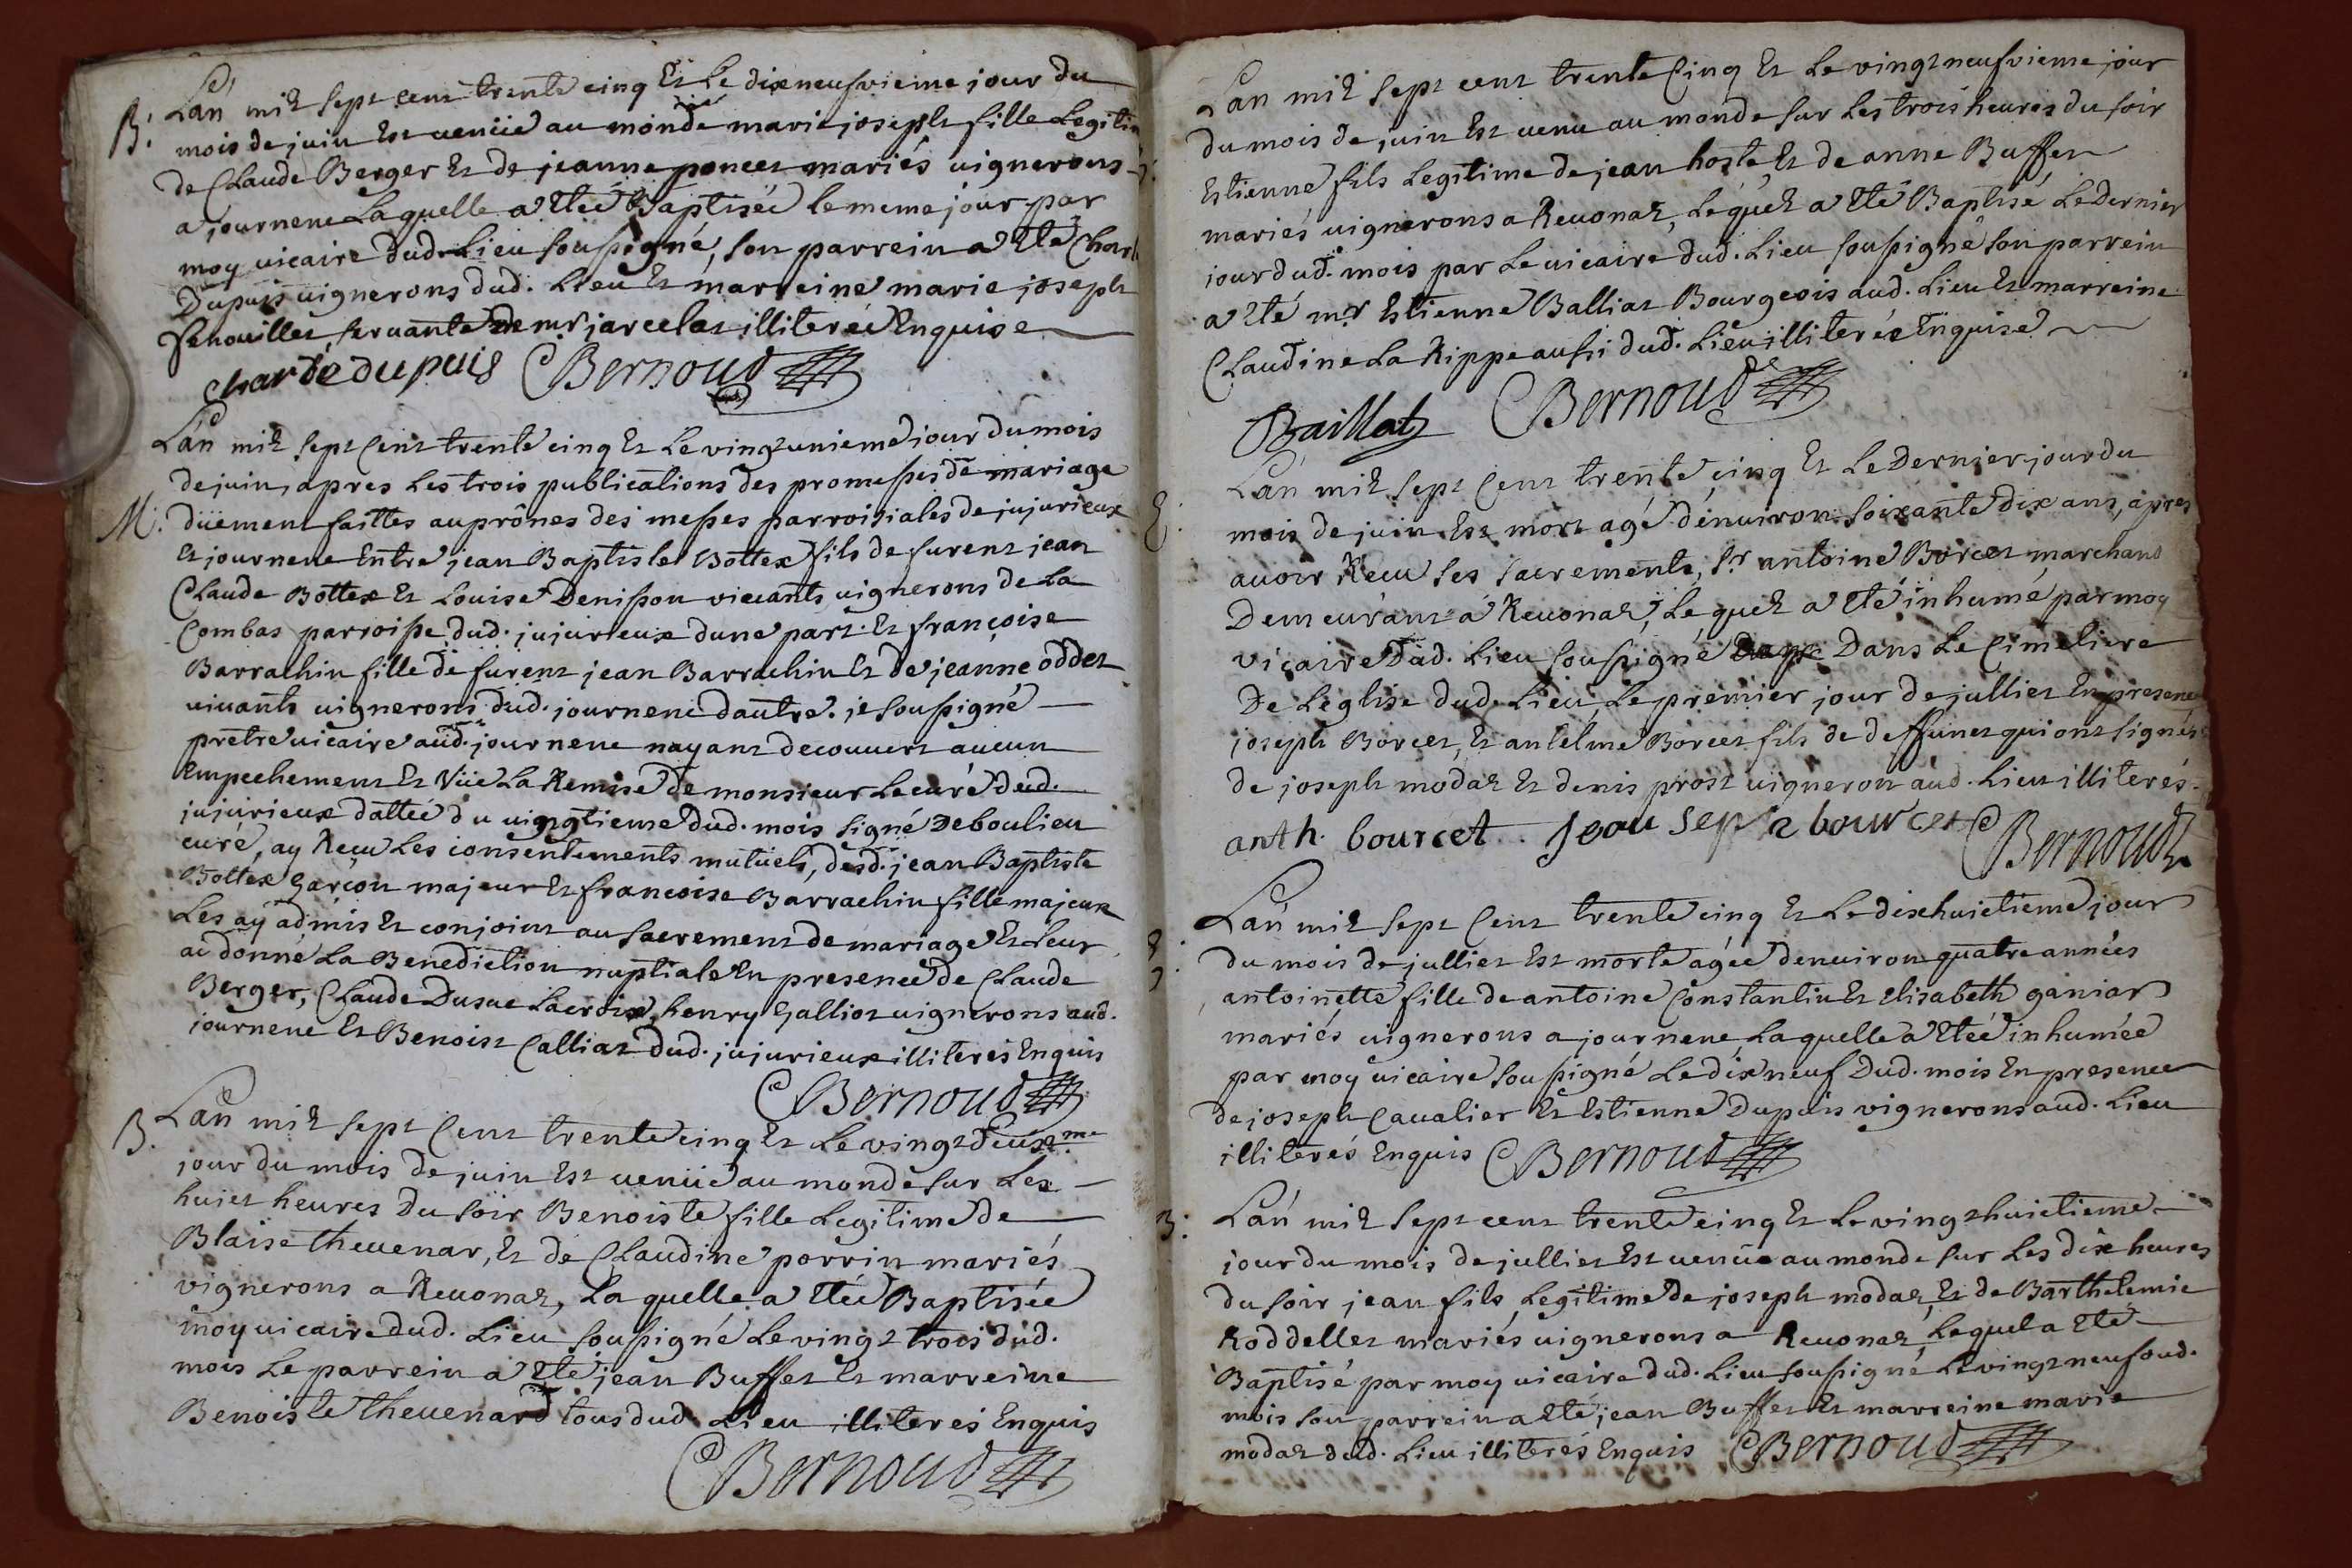 B. Lan mil sept cent trente cinq et le dixneufvieme jour du
mois de juin est venüe au monde marie joseph fille legitim
de Claude Berger et de jeanne poncet mariés vignerons
a journene Laquelle a eté Baptisée le meme jour par
moy vicaire dud. Lieu soussigné, son parrein a eté Charle
Dupuis vignerons dud. Lieu et marreine marie joseph
Fenouillet, servante de mr jarcelat illiterée Enquise
charle dupuis Bernoud
Lan mil sept cent trente cinq et le vingt unieme jour du mois
de juin, apres les trois publications des promesses de mariage
M. düement faittes au prônes des messes parroissiales de jujurieux
et journene Entre jean Baptiste Bottex fils de furent jean
Claude Bottex et Louise Denisson vivants vignerons de La
Combas parroisse dud. jujurieux dune part et françoise
Barrachin fille de furent jean Barrachin et de jeanne oddet
vivants vignerons dud. journene dautre. je soussigné
prêtre vicaire aud. journene nayant decouvert aucun
Empechement et Vüe La Remise de monsieur Le curé dud.
jujurieux dattée du vingtieme dud. mois signé Deboulieu
curé, ay Recu Les consentements mutuels, desd. jean Baptiste
Bottex garçon majeur et francoise Barrachin fille majeur
Les ay admis et conjoint au sacrement de mariage et Leur
ai donné La Benediction nuptiale En presence de Claude
Berger, Claude Dusuc Lacroix, henry Galliot vignerons aud.
journene et Benoist Calliat dud. jujurieux illiterés Enquis
Bernoud
B. Lan mil sept cent trente cinq et Le vingt deuxme
jour du mois de juin est venüe au monde sur Les
huict heures du soir Benoiste fille Legitime de
Blaise thevenar, et de Claudine porrin mariés
vignerons a Revonaz, La quelle a eté Baptisée
moy vicaire dud. Lieu soussigné Le vingt trois dud.
mois Le parrein a eté jean Buffet et marreine
Benoiste thevenard tous dud. Lieu illiterés Enquis
Bernoud
Lan mil sept cent trente Cinq et Le vingt neufvieme jour
du mois de juin est venu au monde sur Les trois heures du soir
B. Estienne fils Legitime de jean hoste, et de anne Buffet
mariés vignerons a Revonaz, Lequel a eté Baptisé Le Dernier
jour dud. mois par Le vicaire dud. Lieu soussigné son parrein
a eté mr Estienne Balliat Bourgeois aud. Lieu et marreine
Claudine La Rippe aussi dud. Lieu illiterée Enquise
Baillat Bernoud
Lan mil sept cent trente cinq et Le Dernier jour du
E. mois de juin Est mort agé denviron soixante dix ans, apres
avoir Recu ses sacrements, sr antoine Borcet marchand
Demeurant a Revonaz, Le quel a eté inhumé par moy
vicaire Dud. Lieu soussigné Dans Le Cimetiere
De Leglise dud. Lieu, Le premier jour de julliet En presence
joseph Borcet, et antelme Borcet fils de deffunct qui ont signés
de joseph modaz et denis prost vigneron aud. Lieu illiterés
anth. bourcet Jean Sepz bourcet Bernoud
Lan mil sept cent trente cinq et Le dixhuictieme jour
E. du mois de julliet Est morte agée denviron quatre années
antoinette fille de antoine Constantin et Elisabeth ganiar
mariés vignerons a journene, Laquelle a eté inhumée
par moy vicaire soussigné Le dix neuf Dud. mois En presence
de joseph Cavalier et Estienne Dupuis vignerons aud. Lieu
illiterés Enquis Bernoud
B. Lan mil sept cent trente cinq et Le vingt huictieme
jour du mois de julliet Est venüe au monde sur Les dix heures
du soir jean fils Legitime de joseph modaz, et de Barthelemie
Roddellet mariés vignerons a Revonaz, Lequel a eté
Baptisé par moy vicaire dud. Lieu soussigné Le vingt neuf oud.
mois son parrein a eté jean Buffet et marreine marie
modaz dud. Lieu illiterés Enquis Bernoud